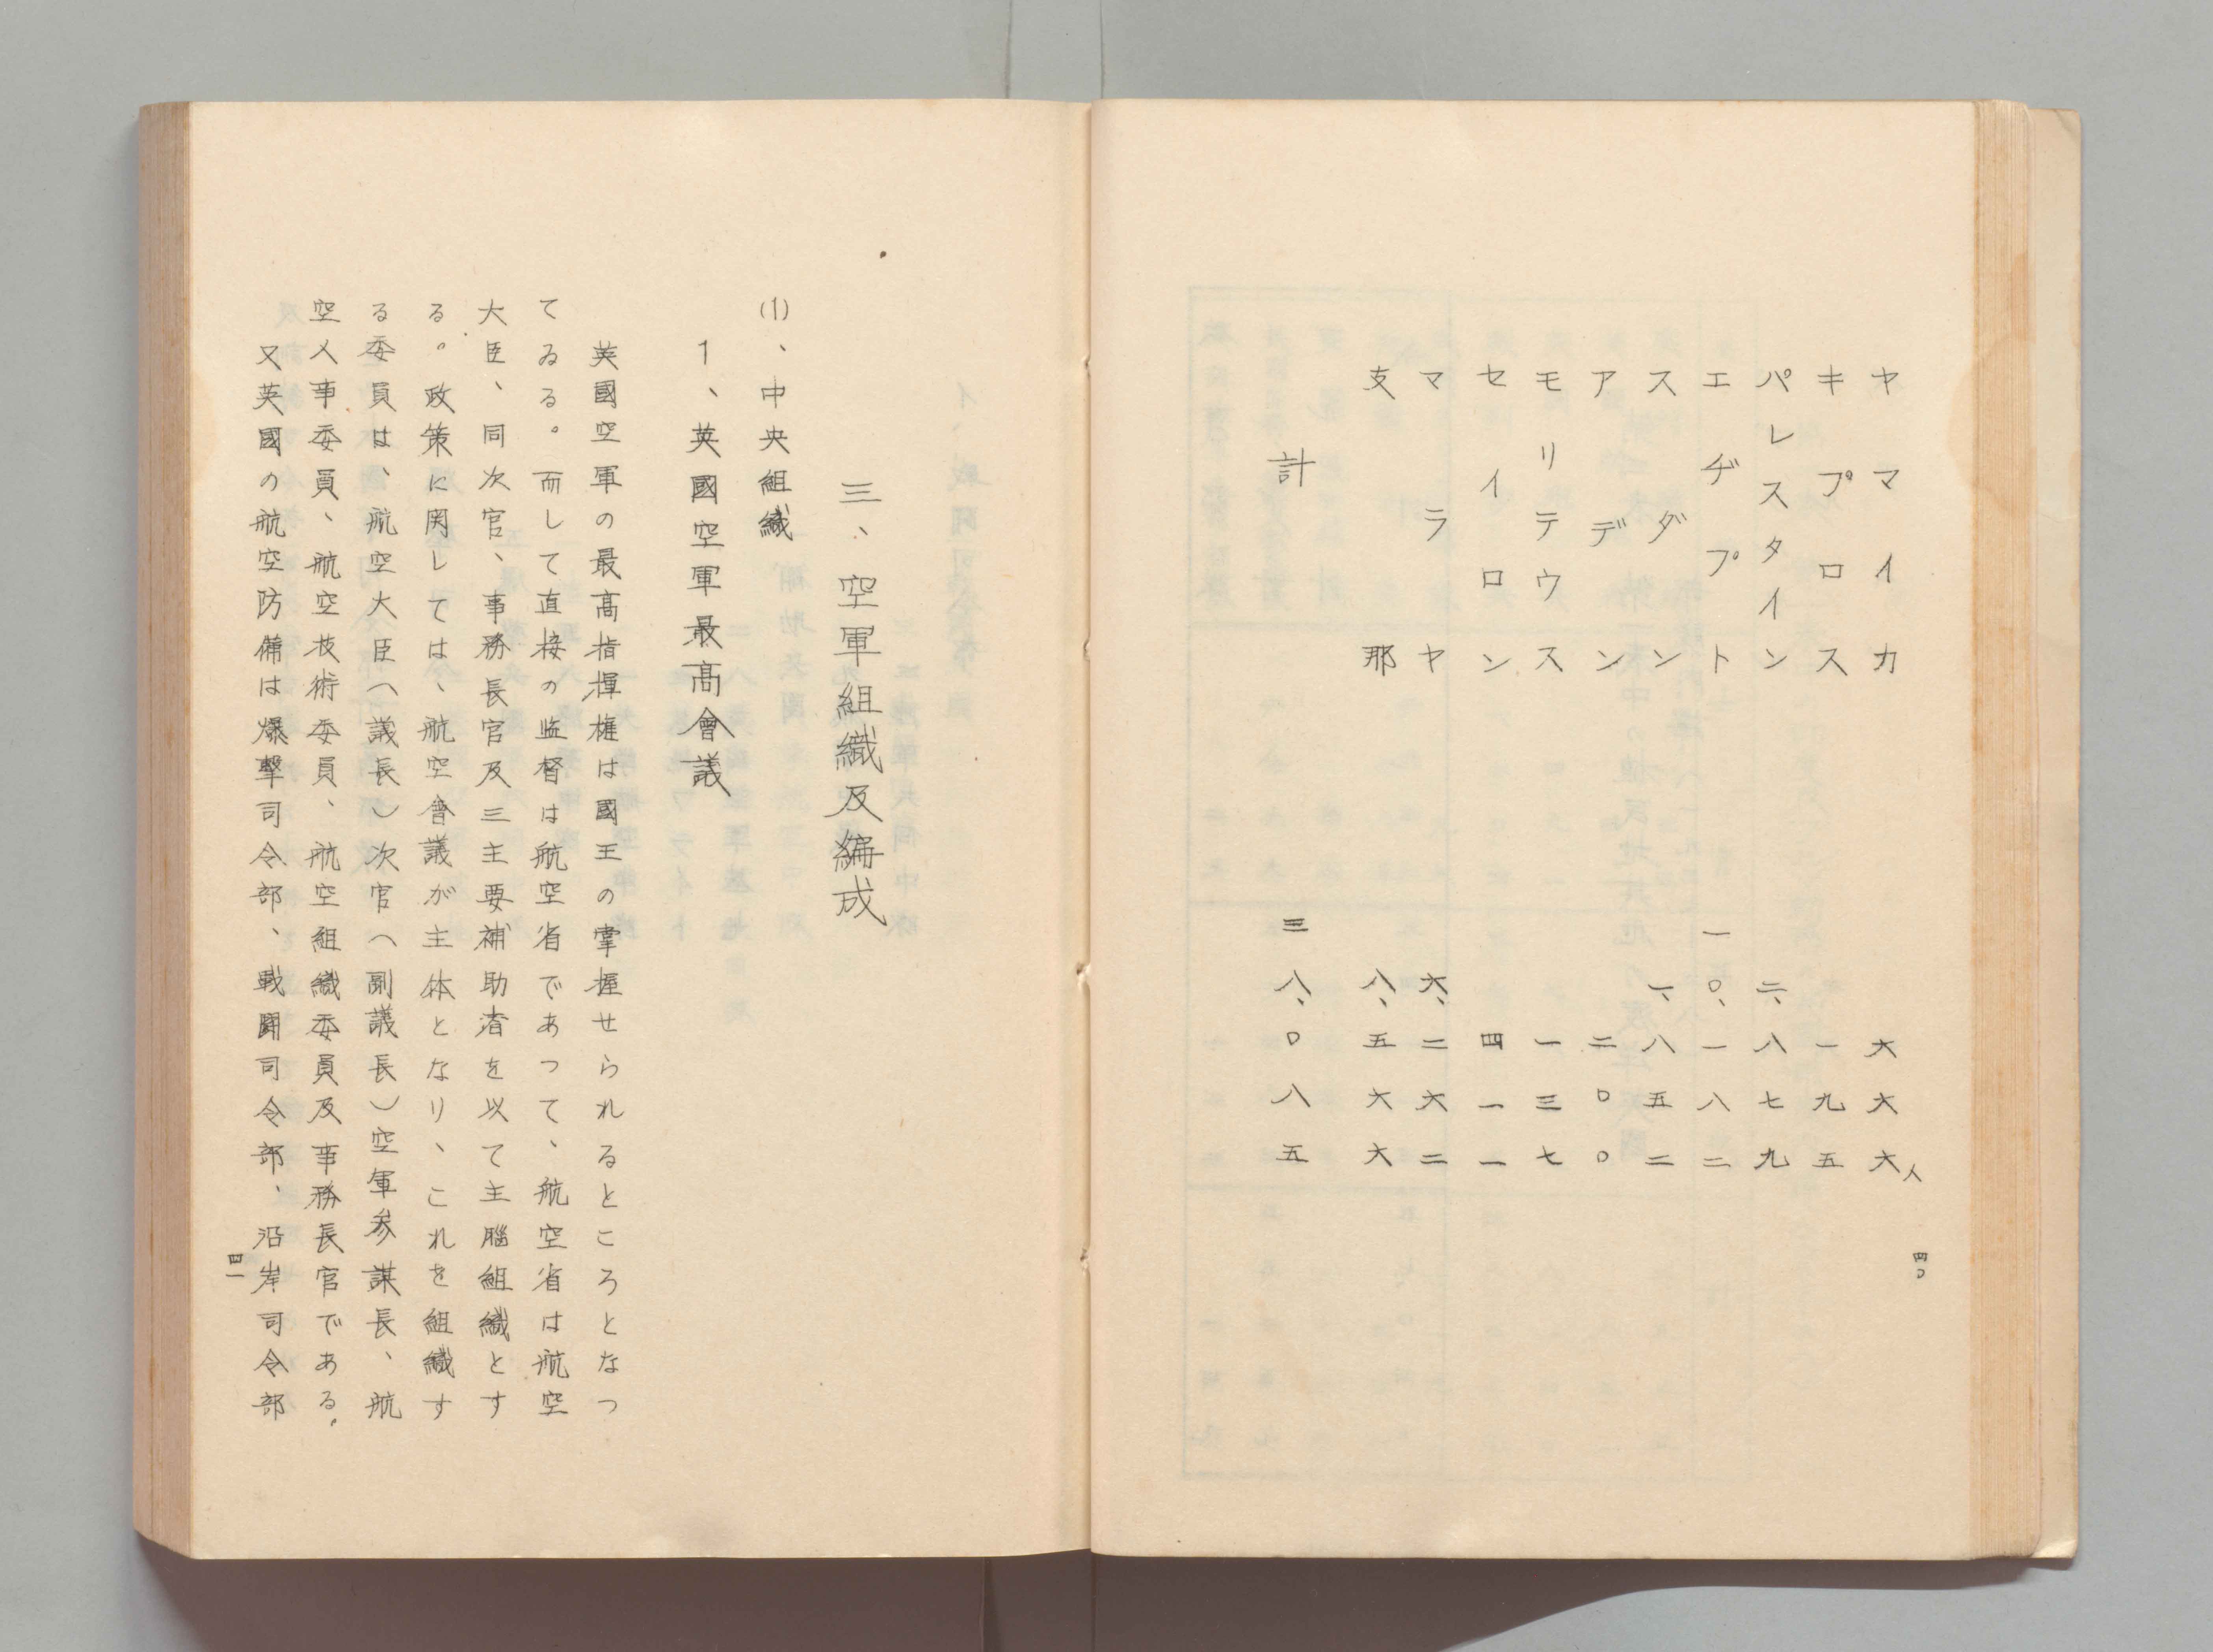 ヤマイカ 六六六人
キプロス 一九五
パレスタイン 二、八七九
エヂプト 一〇、一八二
スダン 一、八五二
アデン 二〇〇
モリテウス 一三七
セイロン 四一一
マラヤ 六、二六二
支那 八、五六六
計 三八、〇八五
四〇
三、空軍組織及編成
(1)、中央組織
1、英國空軍最高會議
英國空軍の最高指揮権は國王の掌握せられるところとなつ
てゐる。而して直接の监督は航空省であつて、航空省は航空
大臣、同次官、事務長官及三主要補助者を以て主腦組織とす
る。政策に関しては、航空會議が主体となり、これを組織す
る委員は、航空大臣(議長)次官(副議長)空軍参謀長、航
空人事委員、航空技術委員、航空組織委員及事務長官である。
又英國の航空防備は爆擊司令部、戰闘司令部、沿岸司令部
四一